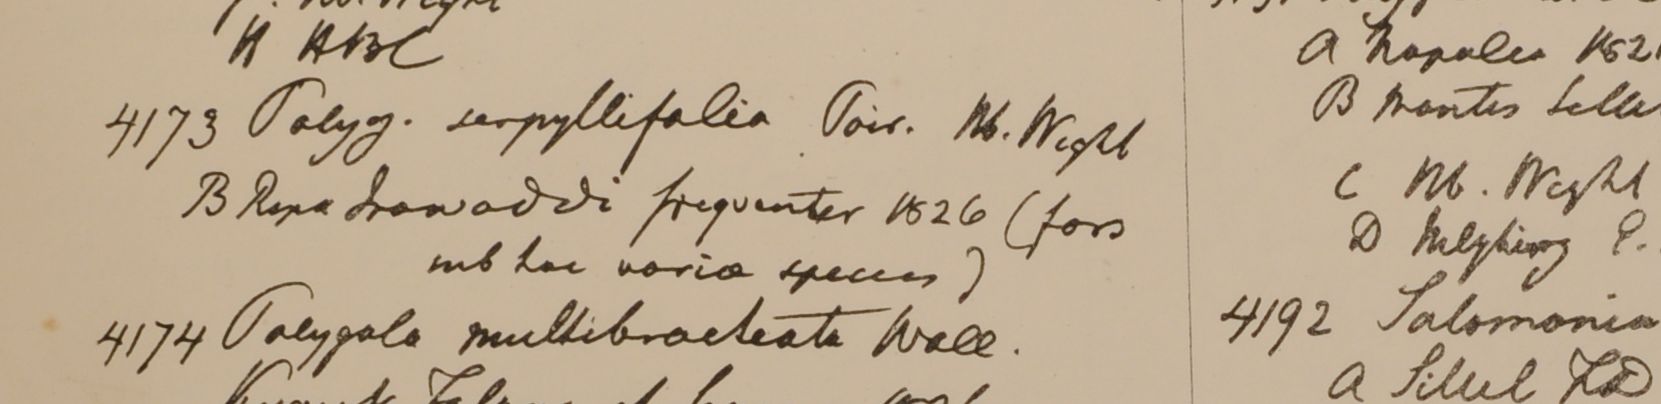 H HBC
4173 Polyg. serpyllifolia Poir. Hb. Wight
B Ripa Irawaddi frequenter 1826 (fors
sub hac variae species)
4174 Polygala multibracteata Wall.
A Napalia 182
B Montes Sille
C Hb. Wight
D
4192 Salomonia
A Sillet FD